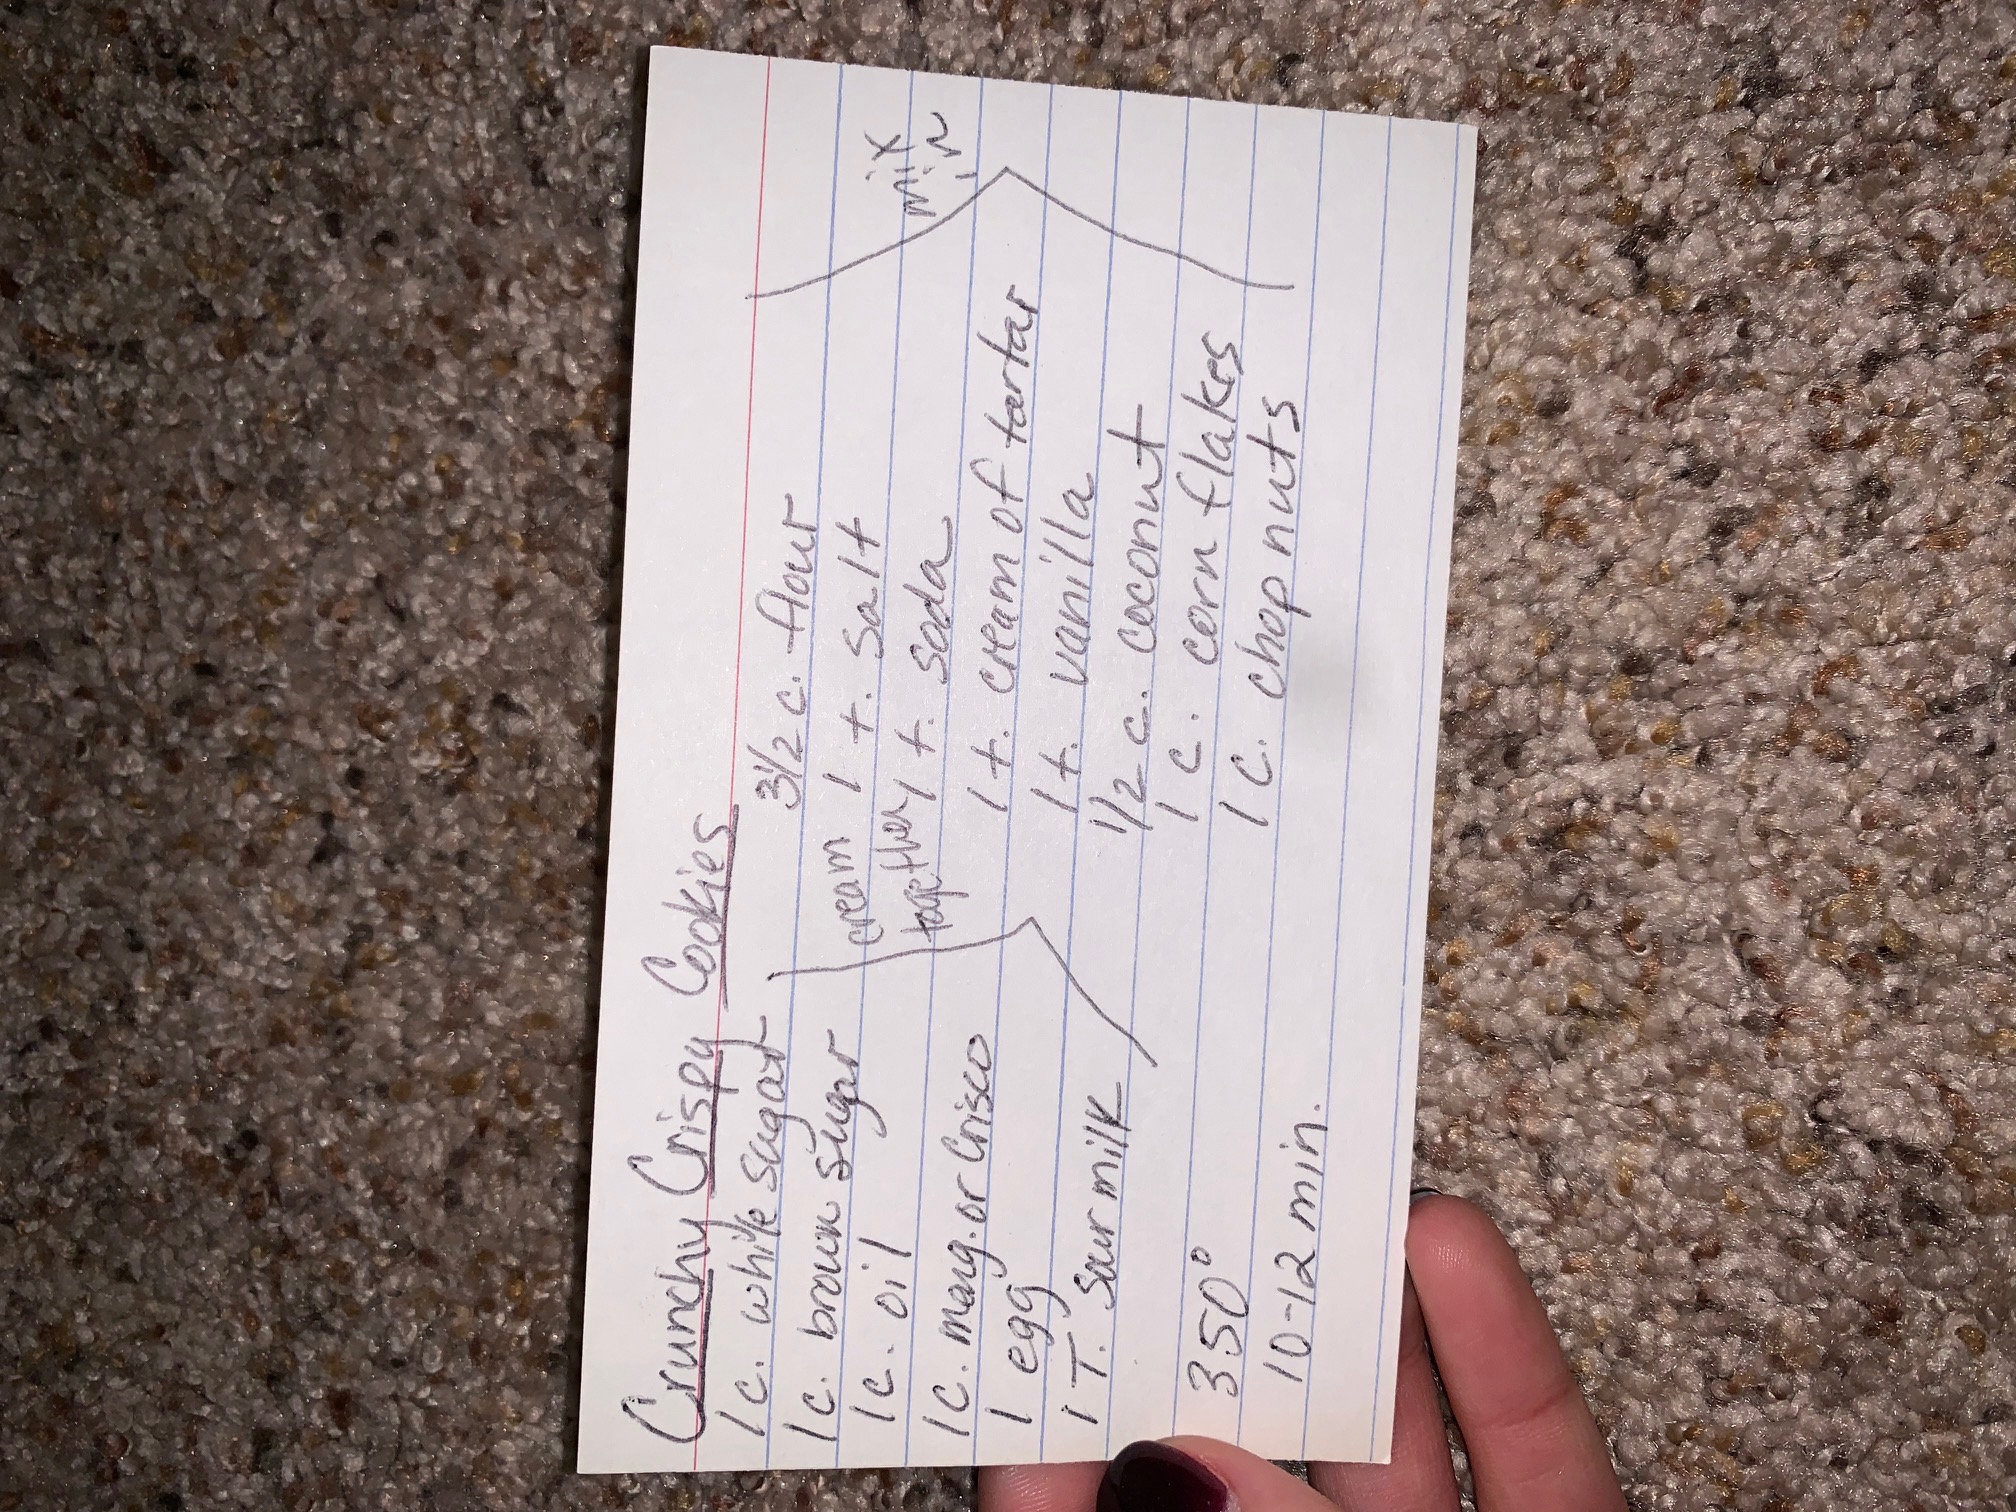 Crunchy Crispy Cookies
1 c. white sugar
1 c. brown sugar
1 c. oil
1 c. marg. or Crisco
1 egg
1 T. Sour milk
cream
together
350°
10-12 min.
3 1/2 c. flour
1 t. salt
1 t. soda
1 t. cream of tartar
1 t. vanilla
1/2 c. coconut
1 c. corn flakes
1 c. chop nuts
mix
in